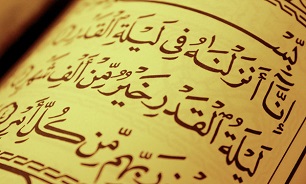 إِنَّا أَنزَلْنَٰهُ فِى لَيْلَةِ ٱلْقَدْرِ
لَيْلَةُ ٱلْقَدْرِ خَيْرٌ مِّنْ أَلْفِ شَهْرٍ
رَبِّهِم مِّن كُلِّ أَمْرٍ